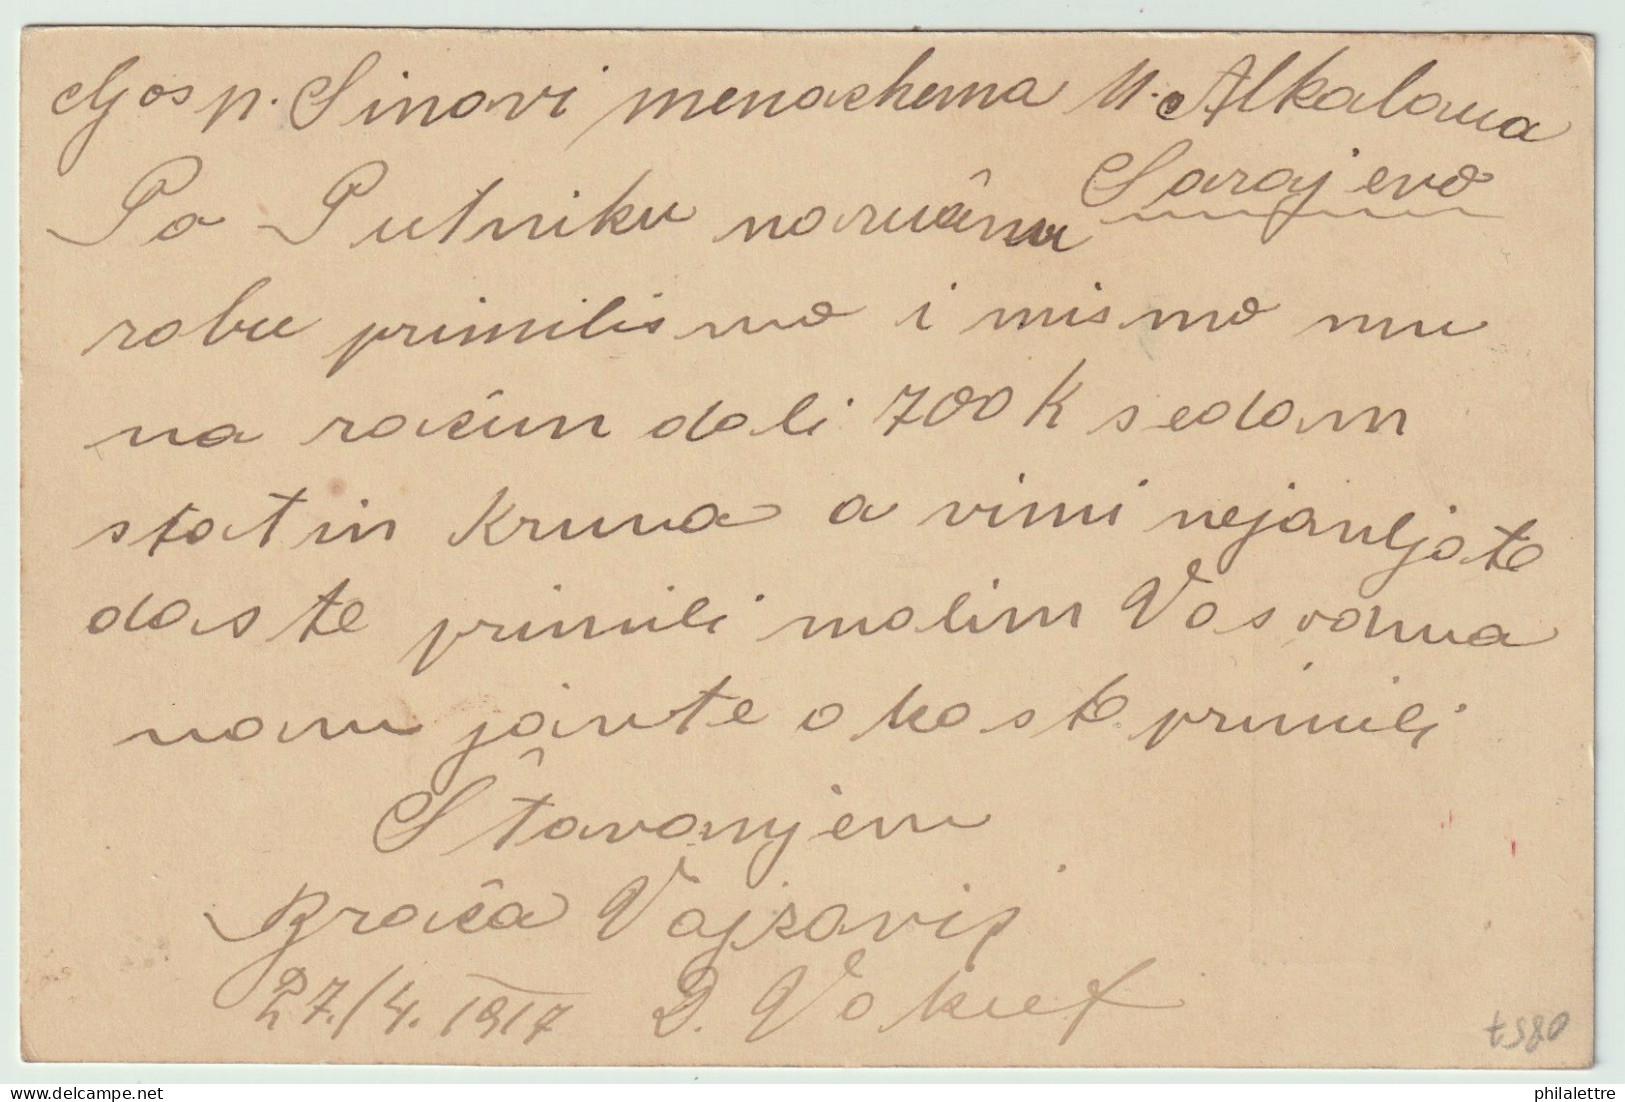 Gosp. Sinovi menachema M. Alkalaua
Sarajevo
Po Putniku naručenu
robu primilismo i mismo mu
na račun dali 700 K sedam
statin Kruna a vimi nejavljate
daste primili molim Vas
nam javite okasta primili
Štavanjem
Braća
27./4. 1917 D. Vakuf
philalettre